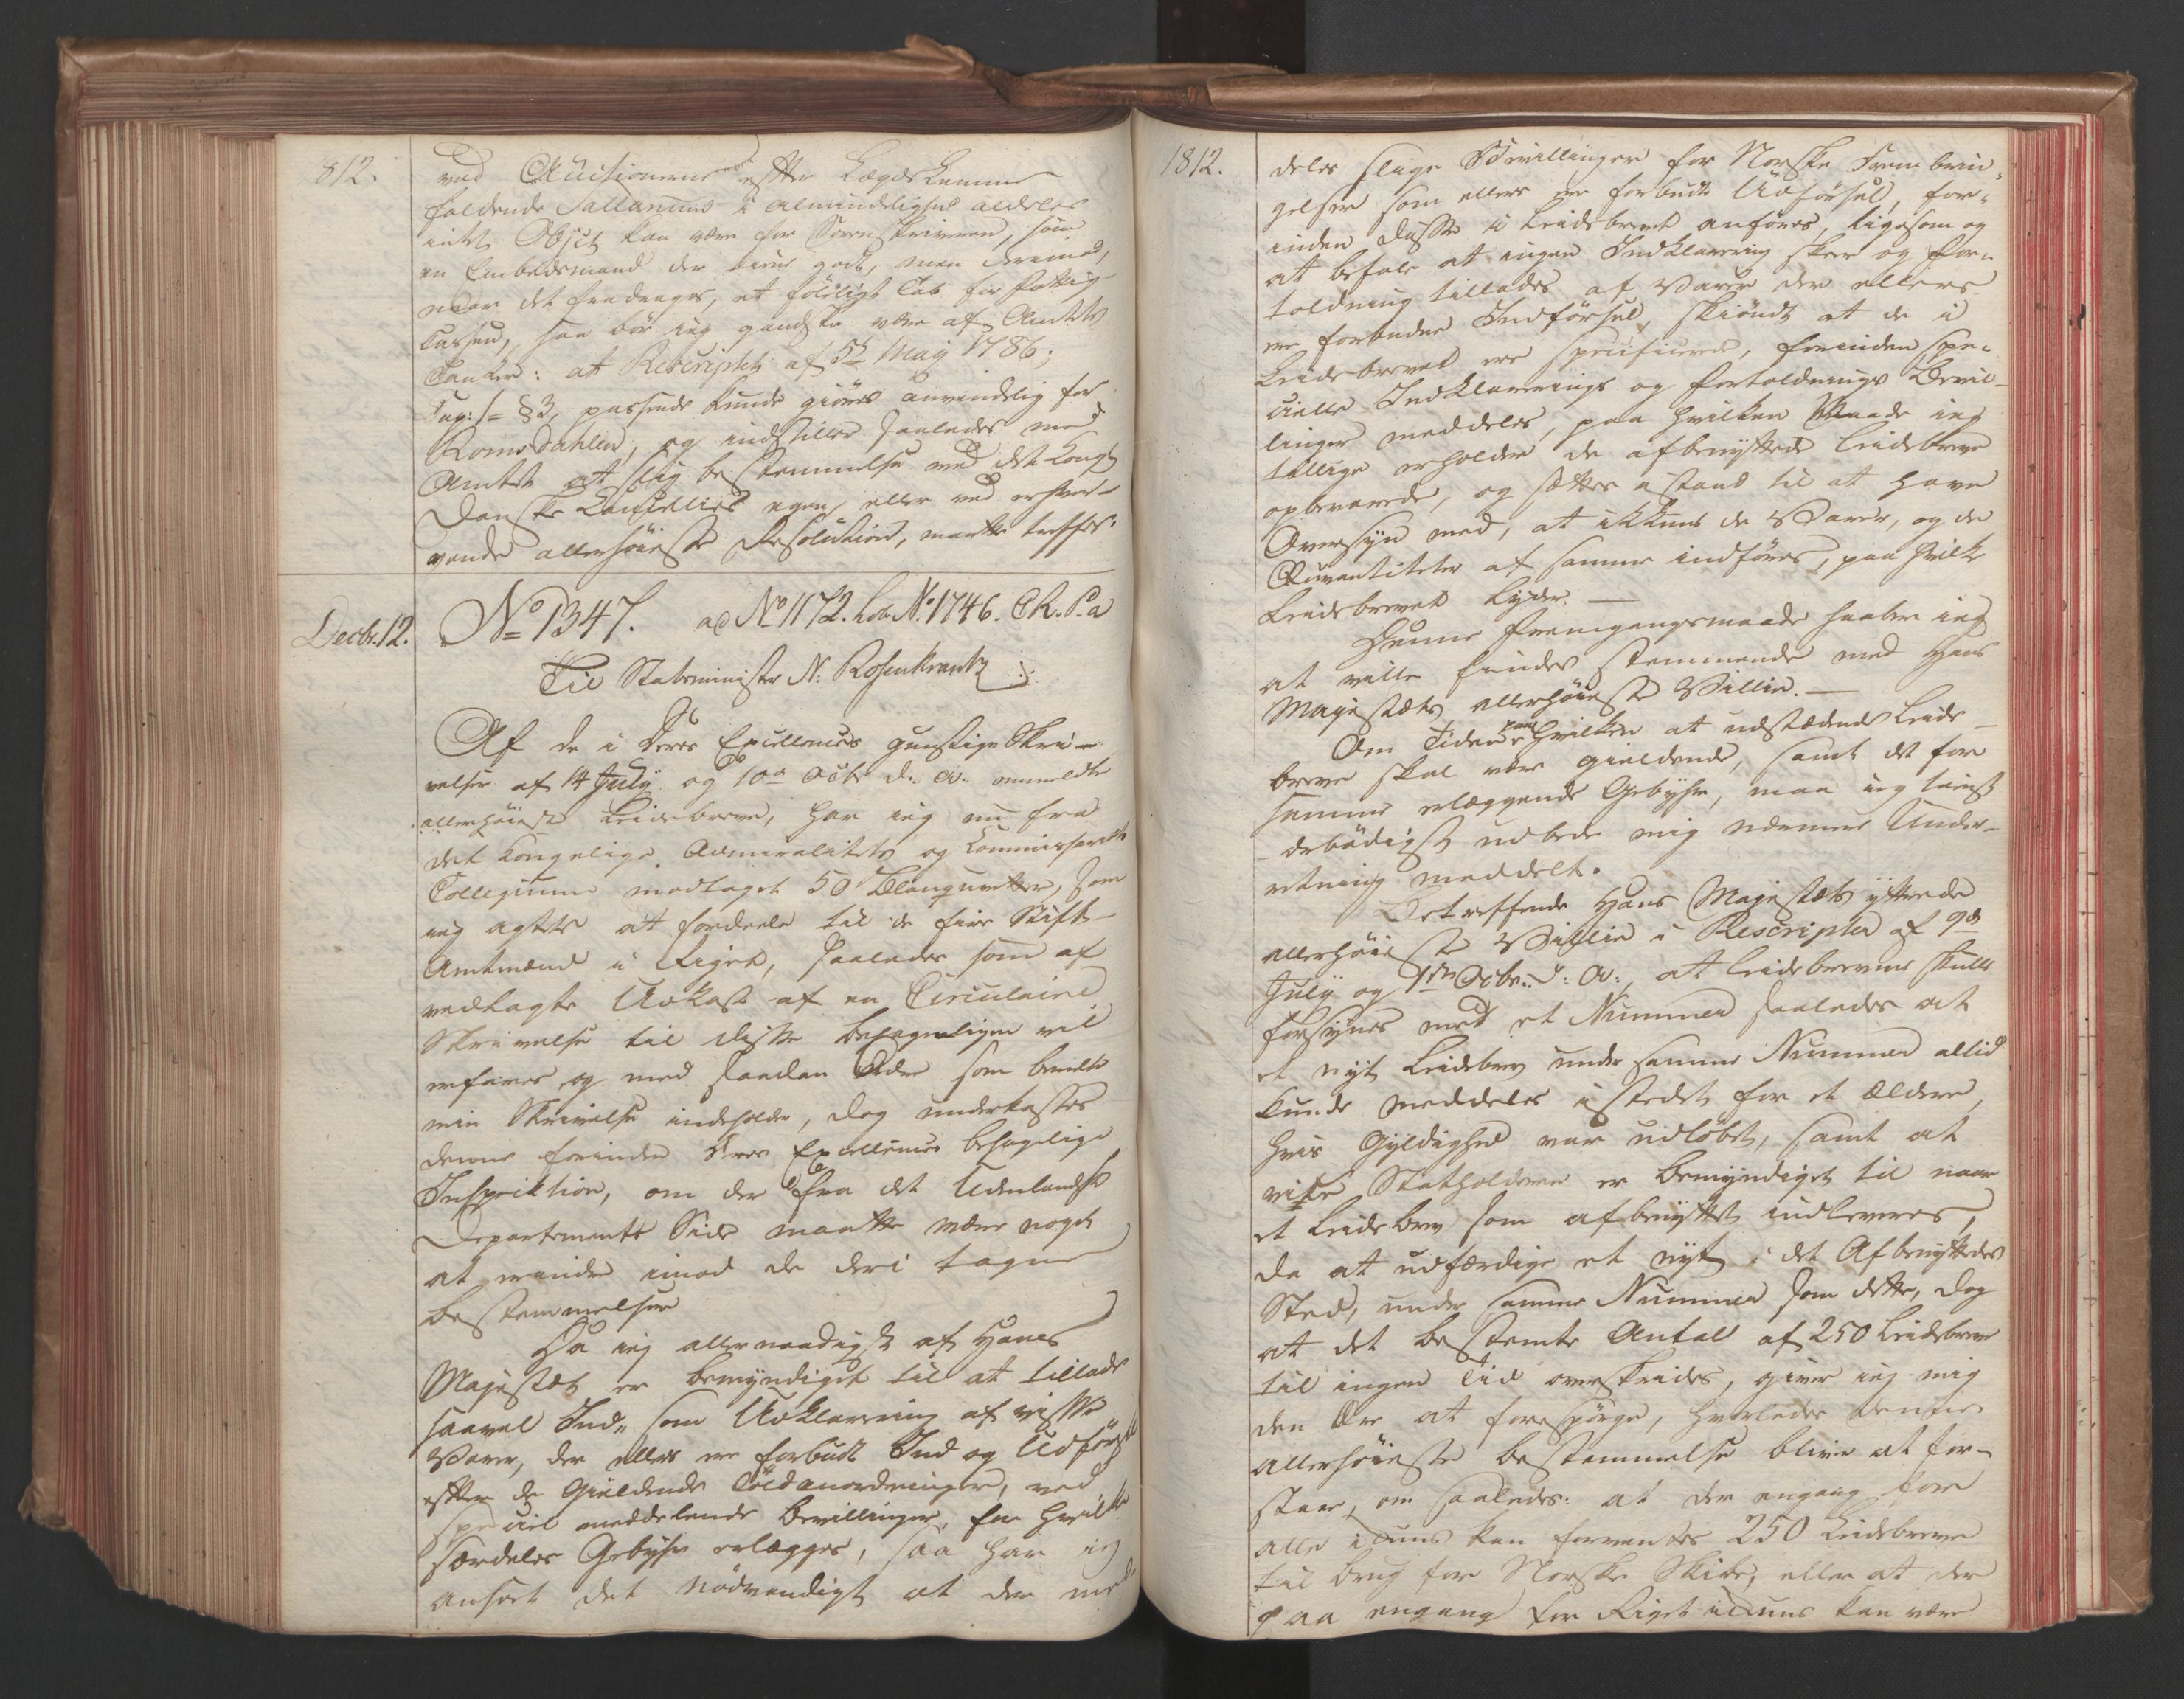 1812.
ved Auctionerne efter Lægdslemme
faldende Sallarium i Almindelighed aldeles
intet Objet kan være for Sorenskriveren, som
en Embedsmand der tiene godt, men derimod,
naar det fradrages, et føleligt Tab for Fattig
Cassen, saa bør jeg gandske være af Amtets
Tanker: at Rescriptet af 5te May 1786;
Cap: 1= §3, passende kunde giøres anvendelig for
Romsdahlen, og indstiller saaledes med
Amtet at slig bestemmelse ved det Kongl
Danske Cancellies egen, eller ved erhver-
vende allerhøieste Resolution, maatte treffes.
Decbr. 12.
No 1347. ad No 1172. Lob. No 1746. C.R.P.a
Til Statsminister N: Rosenkrantz
Af de i Deres Excellences gunstige Skri-
velser af 14 July og 10de Octbr d: A: ommeldte
allerhøieste Leidebreve, har jeg nu fra
det kongelige Admiralitets og Commissariats
Collegium modtaget 50 Blanquetter, som
jeg agter at fordeele til de fire Stift-
Amtmænd i Riget, saaledes som af
vedlagte Udkast af en Circulaire
Skrivelse til disse behageligen vil
erfares, og med saadan Ordre som bemelte
min Skrivelse indeholder, dog underkastes
denne forinden Deres Excellences behagelige
Inspektion, om der fra det Udenlandske
Departements Side maatte være noget
at erindre imod de deri tagne
bestemmelser
Da jeg allernaadigst af Hans
Majestæt er bemyndiget til at tillade
saavel Ind- som Udklarering af visse
Varer, der ellers ere forbudt Ind og Udførsel
efter de Gieldende Toldanordninger, ved
speciel meddelende Bevillinger, for hvilke
særdeles Gebyhr erlægges, saa har jeg
anseet det nødvendigt at der med-
1812.
deles slige Bevillinger for Norske Frembrin-
gelser som ellers ere forbudt Udførsel, for-
inden disse i Leidebrevet anføres, ligesom og
at befale at ingen Indklarering skeer og for-
toldning tillades af Varer der ellers
ere forbudne Indførsel, skiøndt at de i
Leidebrevet ere specificerede, forinden spe-
cielle Indklarerings og Fortoldnings Bevil-
linger meddeles, paa hvilken Maade jeg
tillige erholder de afbenyttede Leidebreve
opbevarede, og sættes i stand til at have
Oversyn med, at ikkuns de Varer, og de
Quantiteter af samme indføres, paa hvilke
Leidebrevet lyder. —
Denne Fremgangsmaade haaber jeg
at ville findes stemmende med Hans
Majestæts allerhøieste Villie. —
Om Tiden paa hvilken at udstædende Leide-
breve skal være gieldende, samt det for
samme erlæggende Gebyhr, maa jeg tienst
ærbødigst udbede mig nærmere Under-
retning meddelt.
Betreffende Hans Majestæts yttrede
allerhøieste Villie i Rescripter af 9de
July og 1ste Octbr: d: A:, at Leidebrevene skulle
forsynes med et Nummer saaledes at
et nyt Leidebrev under samme Nummer altid
kunde meddeles istedet for et ældere,
hvis Gyldighed var udløbet, samt at
vice Statholderen er bemyndiget til naar
et Leidebrev som afbenyttet indleveres,
da at udfærdige et nyt i det Afbenyttedes
Sted, under samme Nummer som dette, dog
at det bestemte Antal af 250 Leidebreve
til ingen Tid overskrides, giver jeg mig
den Ære at forespørge, hvorledes denne
allerhøieste bestemmelse bliver at for-
staae, om saaledes: at der engang for
alle ikkuns kan forventes 250 Leidebreve
til brug for Norske Skibe, eller at der
paa engang for Riget ikkuns kan være